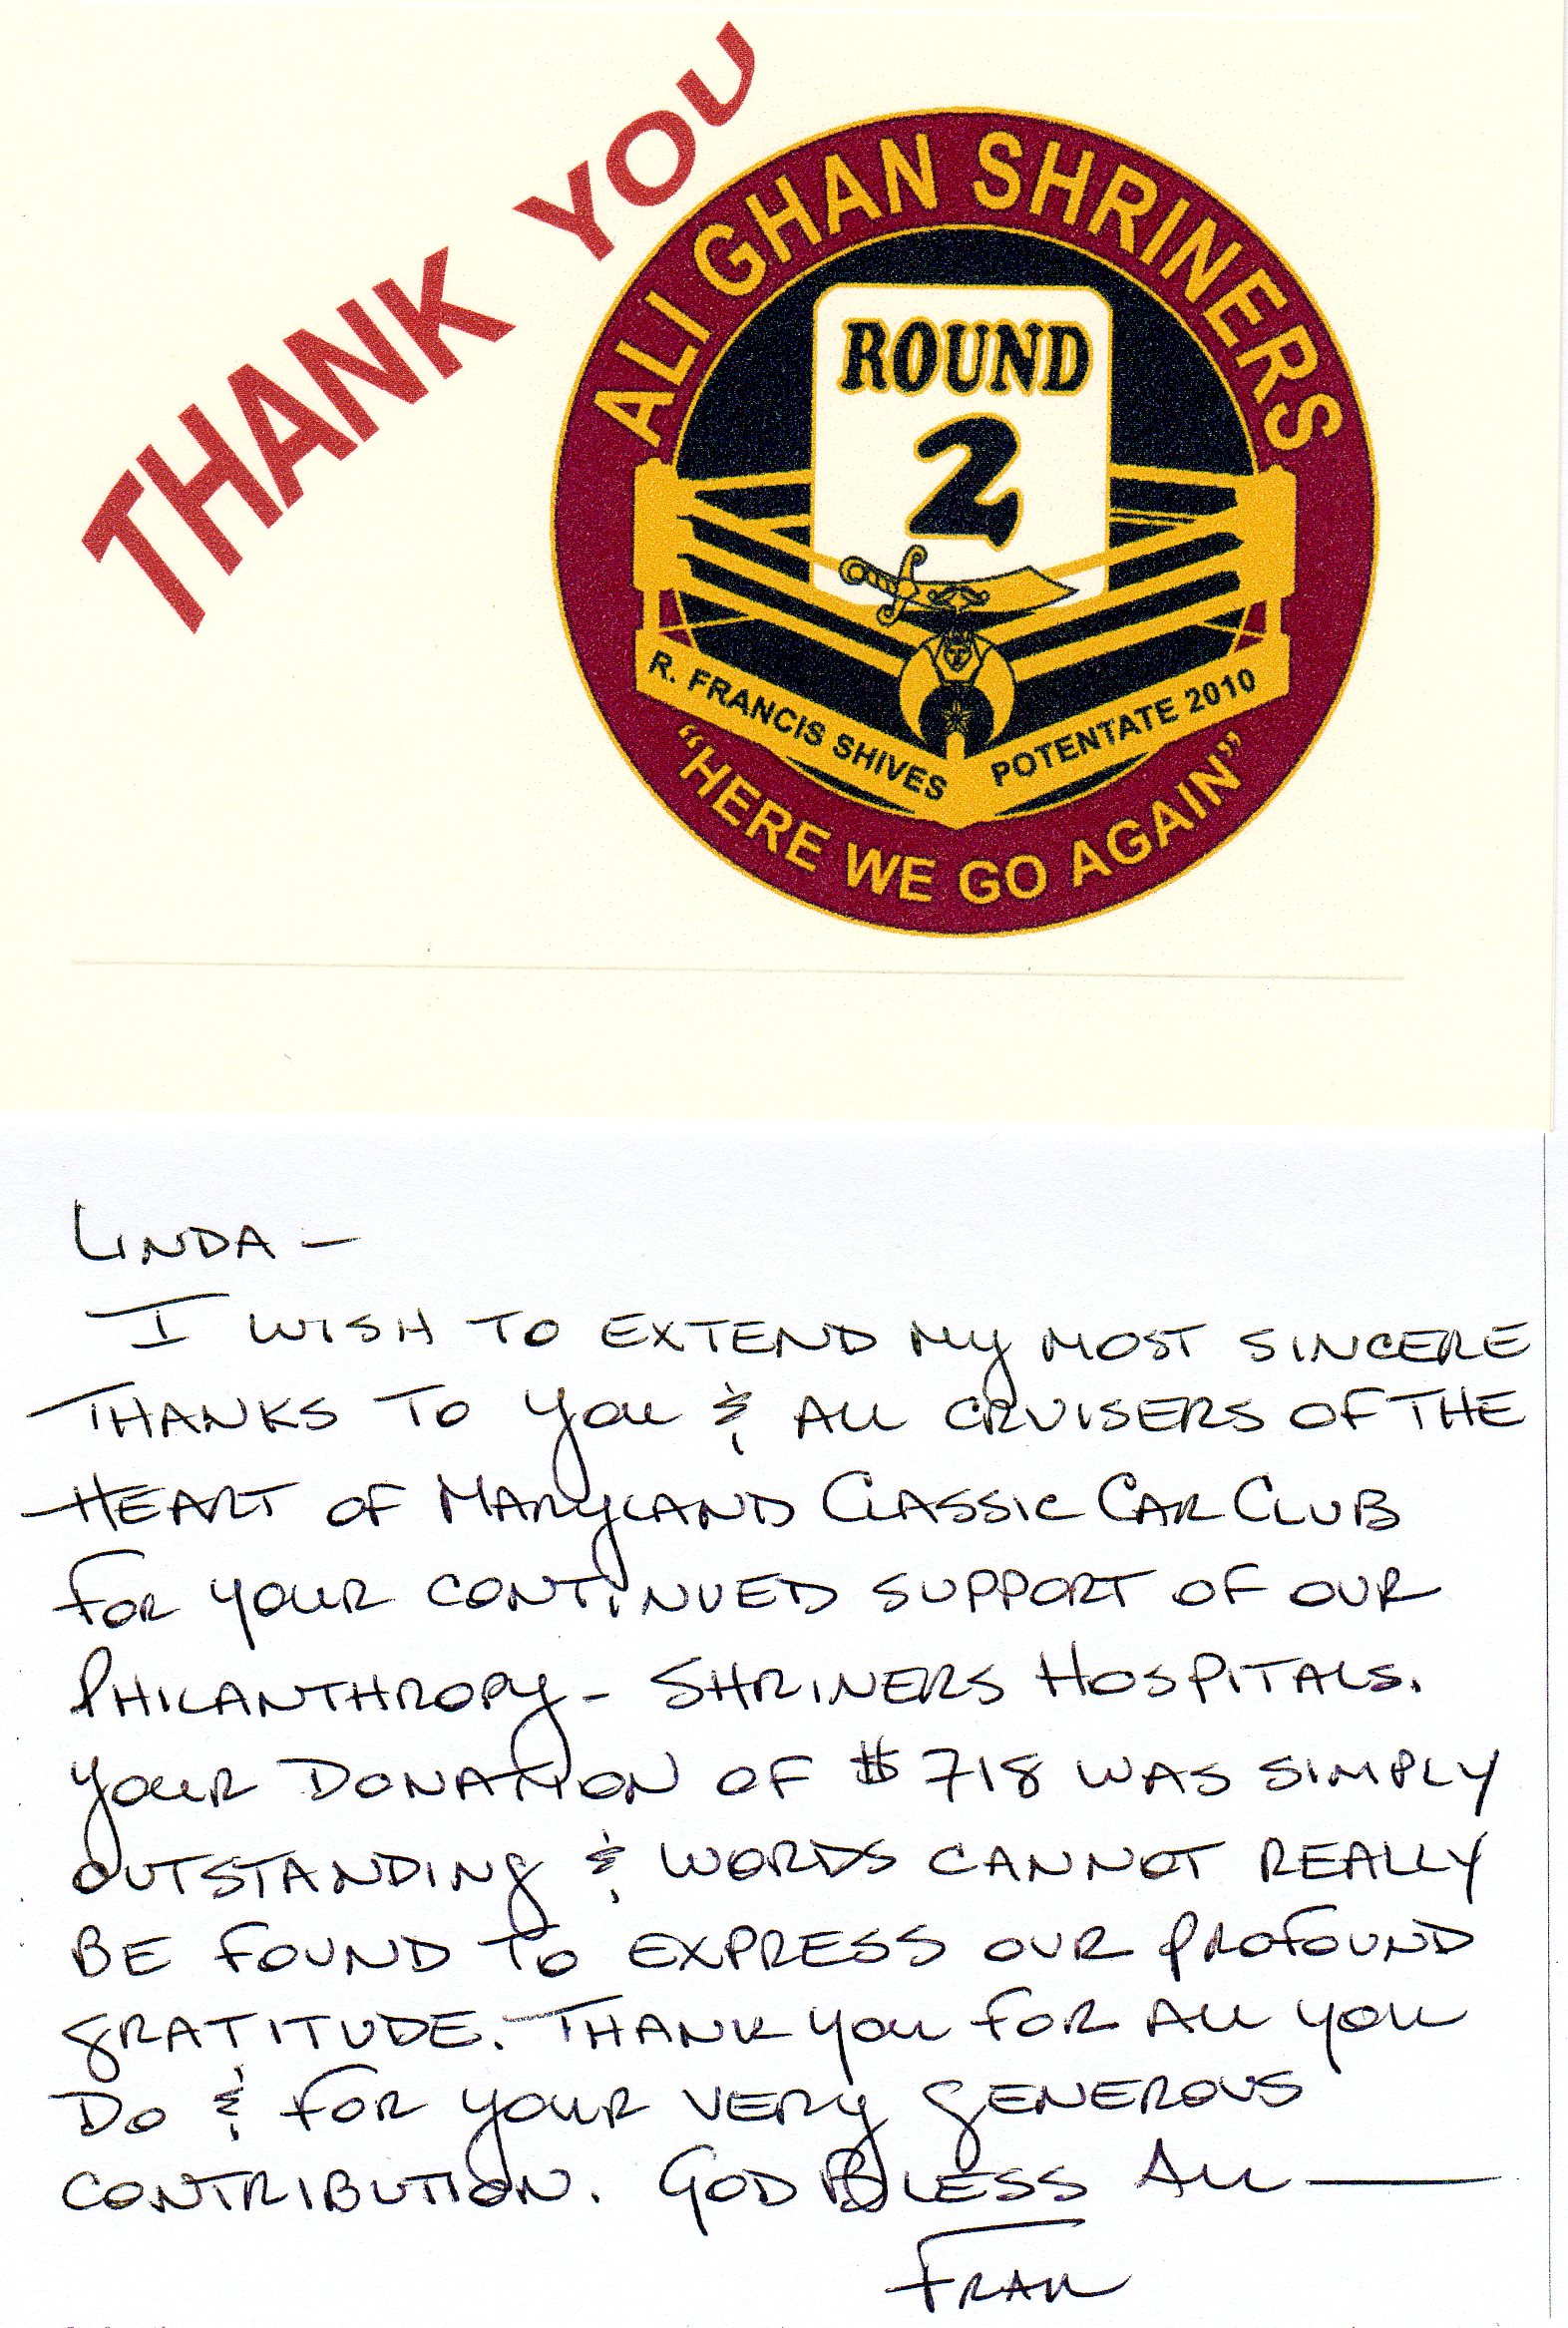 THANK YOU
ALI GHAN SHRINERS
ROUND
2
R. FRANCIS SHIVES POTENTATE 2010
"HERE WE GO AGAIN"
LINDA –
I WISH TO EXTEND MY MOST SINCERE
THANKS TO YOU & ALL CRUISERS OF THE
HEART OF MARYLAND CLASSIC CAR CLUB
FOR YOUR CONTINUED SUPPORT OF OUR
PHILANTHROPY – SHRINERS HOSPITALS.
YOUR DONATION OF $718 WAS SIMPLY
OUTSTANDING & WORDS CANNOT REALLY
BE FOUND TO EXPRESS OUR PROFOUND
GRATITUDE. THANK YOU FOR ALL YOU
DO & FOR YOUR VERY GENEROUS
CONTRIBUTION. GOD BLESS ALL —
FRAN